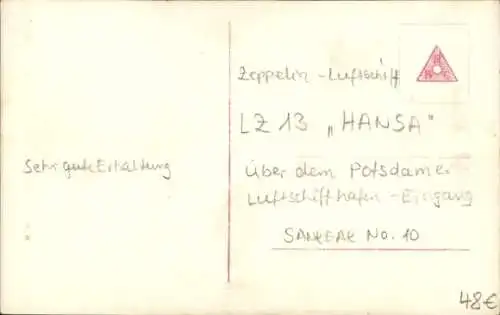 Zeppelin - Luftschiff
LZ 13 „HANSA"
Sehr gute Erhaltung
Über dem Potsdamer
Luftschiffhafen - Eingang
SANKEAK No. 10
48€